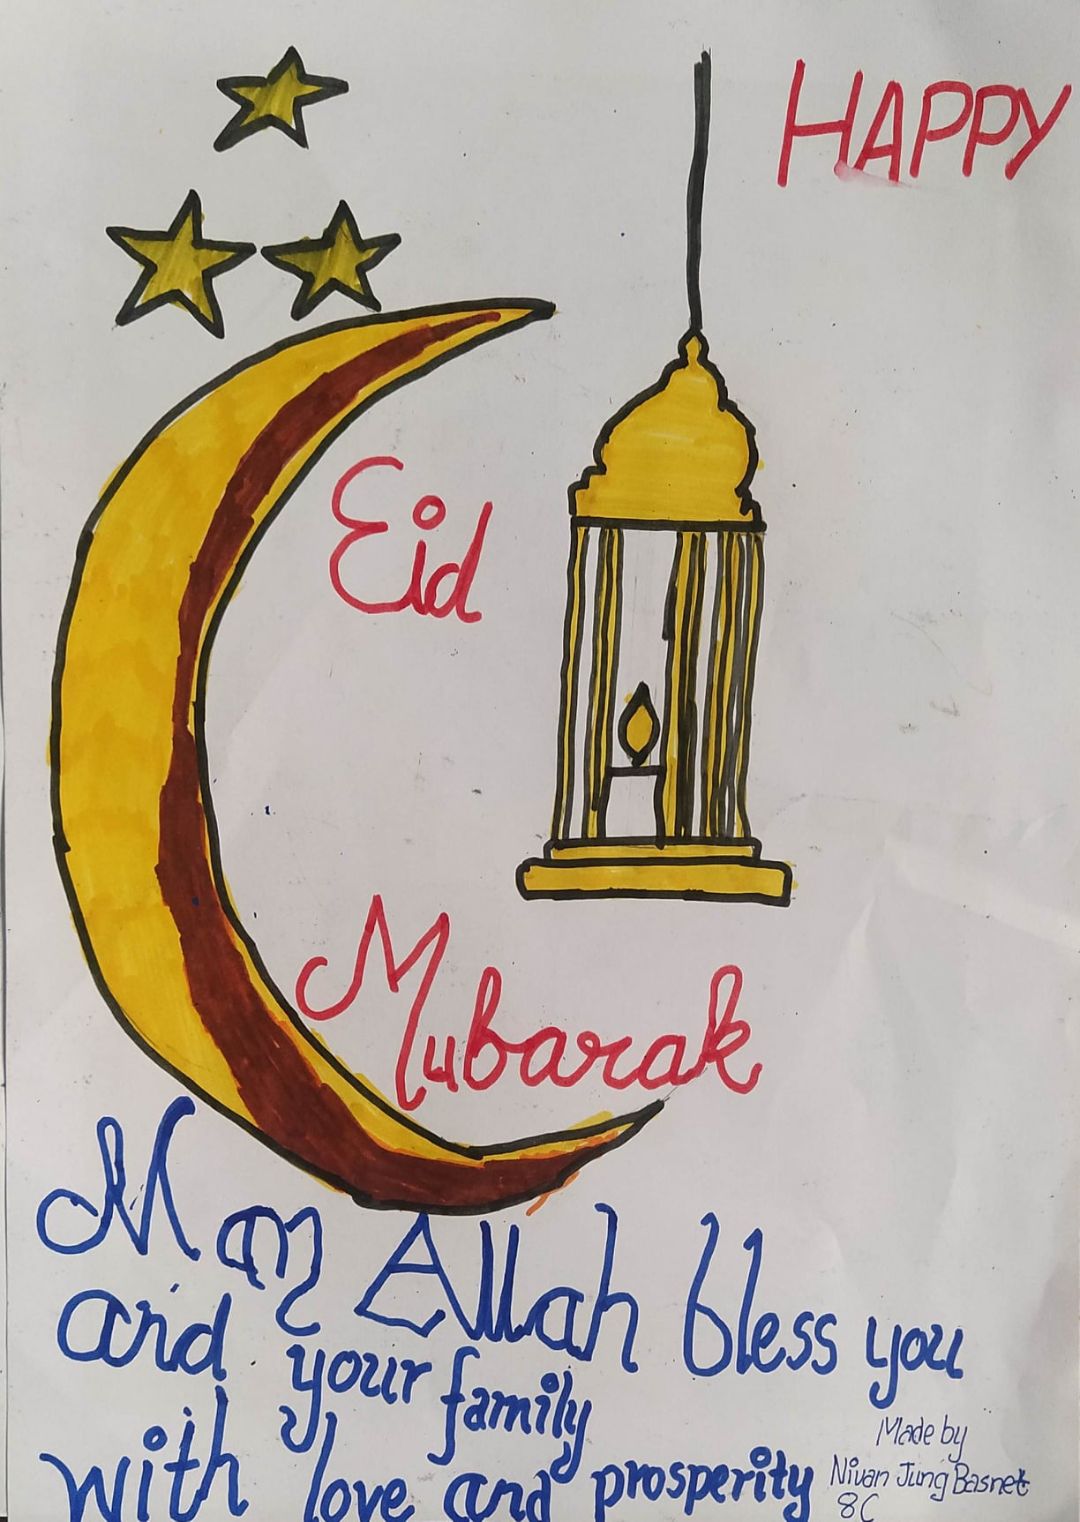 HAPPY
Eid
Mubarak
May Allah bless you
and your family
with love and prosperity
Made by
Nivan Jung Basnet
8C